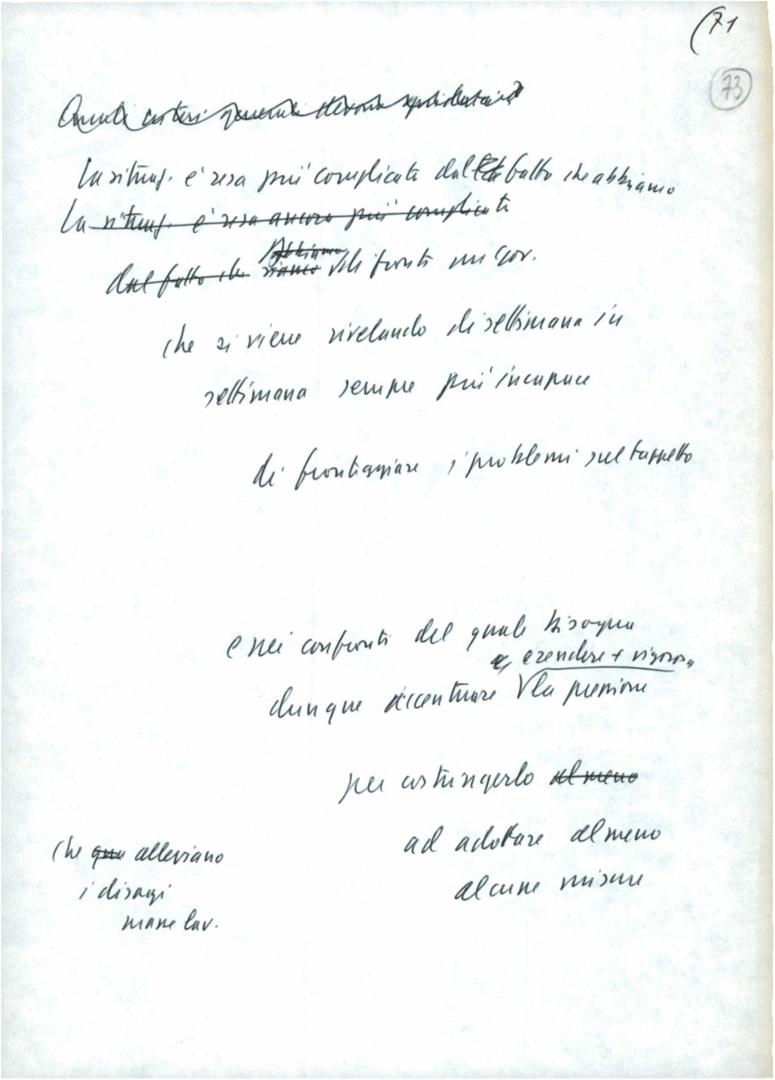 (71
73
Questi criteri generali devono
La situaz. è resa più complicata dal fatto che abbiamo
La situaz. è resa ancora più complicata
dal fatto che siamo abbiamo di fronte un gov.
che si viene rivelando di settimana in
settimana sempre più incapace
di fronteggiare i problemi sul tappeto
e nei confronti del quale bisogna
e rendere + vigorosa
dunque accentuare la pressione
per costringerlo almeno
ad adottare almeno
alcune misure
che alleviano
i disagi
masse lav.